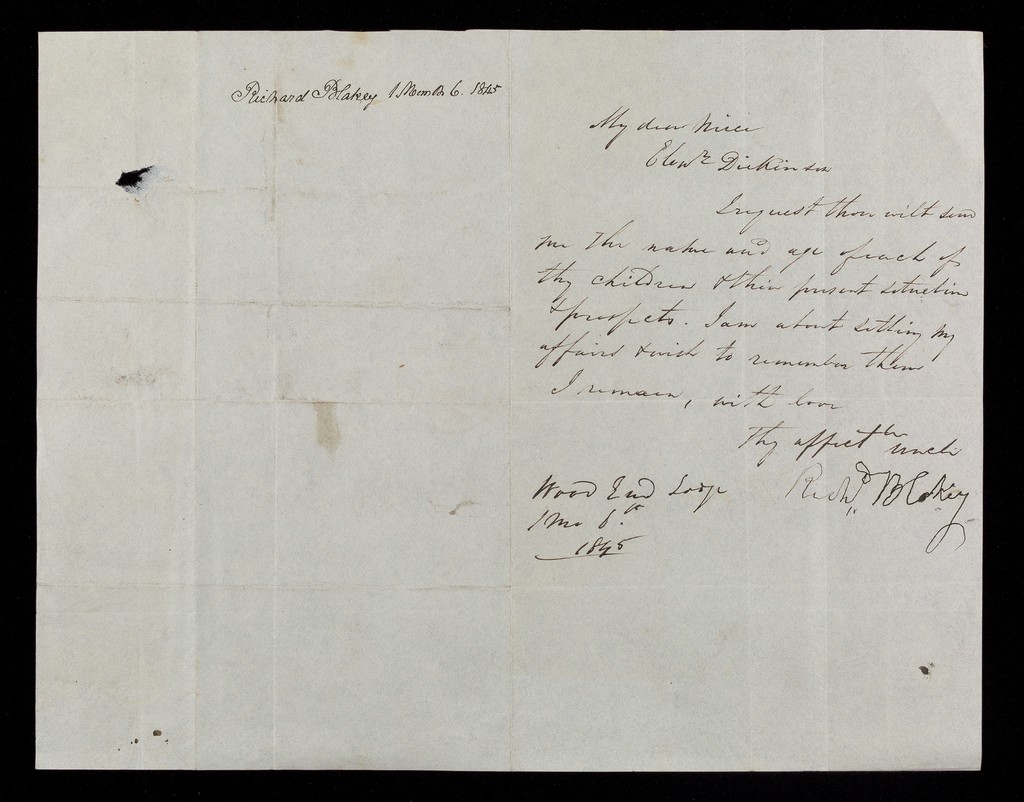 Richard Blakey 1 Month 6. 1845
My dear Niece
Elean.r Dickinson
I request thou wilt send
me the name and age of each of
thy children & their present situation
& prospects. I am about settling my
affairs & wish to remember them
I remain, with love
Thy affect.te uncle
Rich.d Blakey
Wood End Lodge
1 Mo 6.th
1845